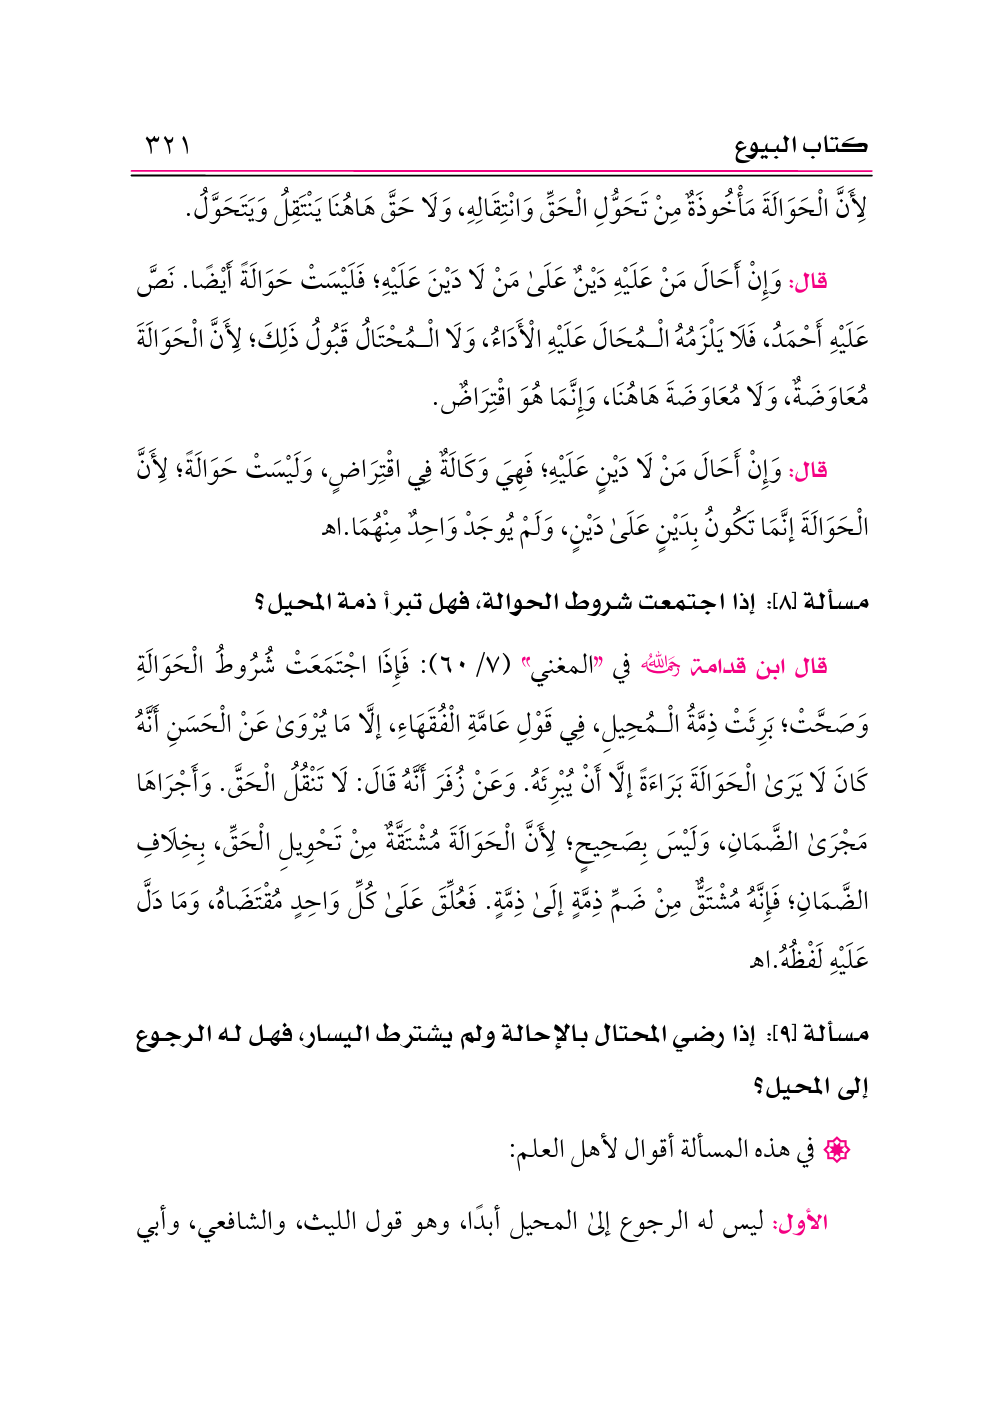 كتاب البيوع ٣٢١
لِأَنَّ الْحَوَالَةَ مَأْخُوذَةٌ مِنْ تَحَوُّلِ الْحَقِّ وَانْتِقَالِهِ، وَلَا حَقَّ هَاهُنَا يَنْتَقِلُ وَيَتَحَوَّلُ.
قال: وَإِنْ أَحَالَ مَنْ عَلَيْهِ دَيْنٌ عَلَىٰ مَنْ لَا دَيْنَ عَلَيْهِ؛ فَلَيْسَتْ حَوَالَةً أَيْضًا. نَصَّ
عَلَيْهِ أَحْمَدُ، فَلَا يَلْزَمُهُ الْـمُحَالَ عَلَيْهِ الْأَدَاءُ، وَلَا الْـمُحْتَالُ قَبُولُ ذَلِكَ؛ لِأَنَّ الْحَوَالَةَ
مُعَاوَضَةٌ، وَلَا مُعَاوَضَةَ هَاهُنَا، وَإِنَّمَا هُوَ اقْتِرَاضٌ.
قال: وَإِنْ أَحَالَ مَنْ لَا دَيْنٍ عَلَيْهِ؛ فَهِيَ وَكَالَةٌ فِي اقْتِرَاضٍ، وَلَيْسَتْ حَوَالَةً؛ لِأَنَّ
الْحَوَالَةَ إنَّمَا تَكُونُ بِدَيْنٍ عَلَىٰ دَيْنٍ، وَلَمْ يُوجَدْ وَاحِدٌ مِنْهُمَا.اﻫ
مسألة [٨]: إذا اجتمعت شروط الحوالة، فهل تبرأ ذمة المحيل؟
قال ابن قدامة رحمه الله في ”المغني“ (٧/ ٦٠): فَإِذَا اجْتَمَعَتْ شُرُوطُ الْحَوَالَةِ
وَصَحَّتْ؛ بَرِئَتْ ذِمَّةُ الْـمُحِيلِ، فِي قَوْلِ عَامَّةِ الْفُقَهَاءِ، إلَّا مَا يُرْوَىٰ عَنْ الْحَسَنِ أَنَّهُ
كَانَ لَا يَرَىٰ الْحَوَالَةَ بَرَاءَةً إلَّا أَنْ يُبْرِئَهُ. وَعَنْ زُفَرَ أَنَّهُ قَالَ: لَا تَنْقُلُ الْحَقَّ. وَأَجْرَاهَا
مَجْرَىٰ الضَّمَانِ، وَلَيْسَ بِصَحِيحٍ؛ لِأَنَّ الْحَوَالَةَ مُشْتَقَّةٌ مِنْ تَحْوِيلِ الْحَقِّ، بِخِلَافِ
الضَّمَانِ؛ فَإِنَّهُ مُشْتَقٌّ مِنْ ضَمِّ ذِمَّةٍ إلَىٰ ذِمَّةٍ. فَعُلِّقَ عَلَىٰ كُلِّ وَاحِدٍ مُقْتَضَاهُ، وَمَا دَلَّ
عَلَيْهِ لَفْظُهُ.اﻫ
مسألة [٩]: إذا رضي المحتال بالإحالة ولم يشترط اليسار، فهل له الرجوع
إلى المحيل؟
في هذه المسألة أقوال لأهل العلم:
الأول: ليس له الرجوع إلىٰ المحيل أبدًا، وهو قول الليث، والشافعي، وأبي